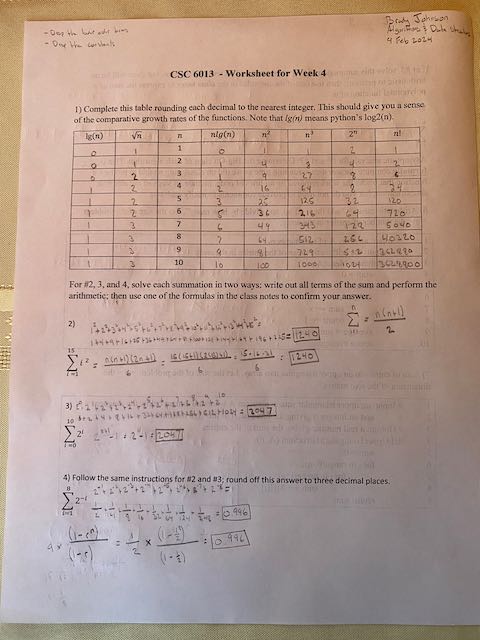 - Drop the low order terms
- Drop the constants
Brady Johnson
Algorithms & Data
4 Feb 2024
CSC 6013 - Worksheet for Week 4
1) Complete this table rounding each decimal to the nearest integer. This should give you a sense
of the comparative growth rates of the functions. Note that lg(n) means python's log2(n).
lg(n) √n n nlg(n) n² n³ 2ⁿ n!
0 1 1 0 1 1 2 1
0 1 2 1 4 4 2
0 2 3 1 9 27 8 6
1 2 4 2 16 64 24
1 2 5 3 25 125 32 120
1 2 6 5 36 216 64 720
1 3 7 6 49 343 128 5040
1 3 8 7 64 512 256 40320
1 3 9 9 81 729 512 362880
1 3 10 10 100 1000 1024 3628800
For #2, 3, and 4, solve each summation in two ways: write out all terms of the sum and perform the
arithmetic; then use one of the formulas in the class notes to confirm your answer.
2) 1²+2²+3²+4²+5²+6²+7²+8²+9²+10²+11²+12²+13²+14²+15² =
1+4+9+16+25+36+49+64+81+100+121+144+169+196+225= 1240
∑ = n(n+1)/2
15 ∑ i=1 i² = n(n+1)(2n+1)/6 = = 15·16·31/6 = 1240
3) 2⁰+2¹+2²+2³+2⁴+2⁵+2⁶+2⁷+2⁸+2⁹+2¹⁰
+2+4+8+16+32+64+128+256+512+1024 = 2047
10 ∑ i=0 2ⁱ 2ⁿ⁺¹-1 = 2¹¹-1 = 2047
4) Follow the same instructions for #2 and #3; round off this answer to three decimal places.
8 ∑ i=1 2⁻ⁱ 2⁻¹+2⁻²+2⁻³+2⁻⁴+2⁻⁵+2⁻⁶+2⁻⁷+2⁻⁸=
1/2+1/4+1/8+1/16+1/32+1/64+1/128+1/256 = 0.996
a × (1-rⁿ)/(1-r) = 1/2 × /(1-½) = 0.996